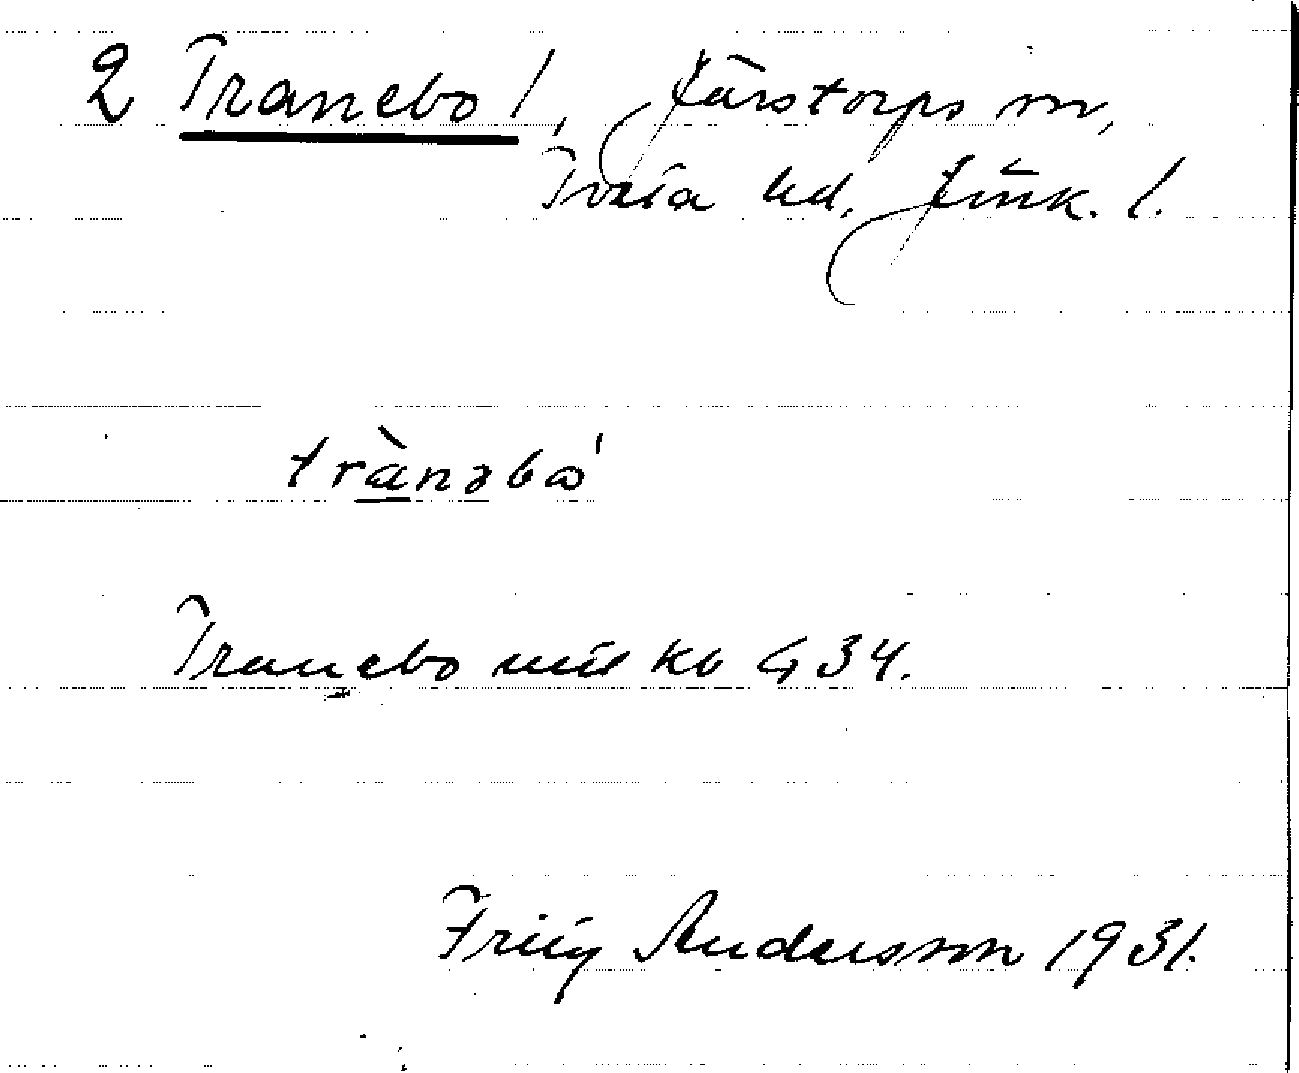 2 Tranebo l, Järstorps sn,
Tveta hd, Jönk. l.
trànəbω'
Tranebo mtl kb G 34.
Andersson 1931.